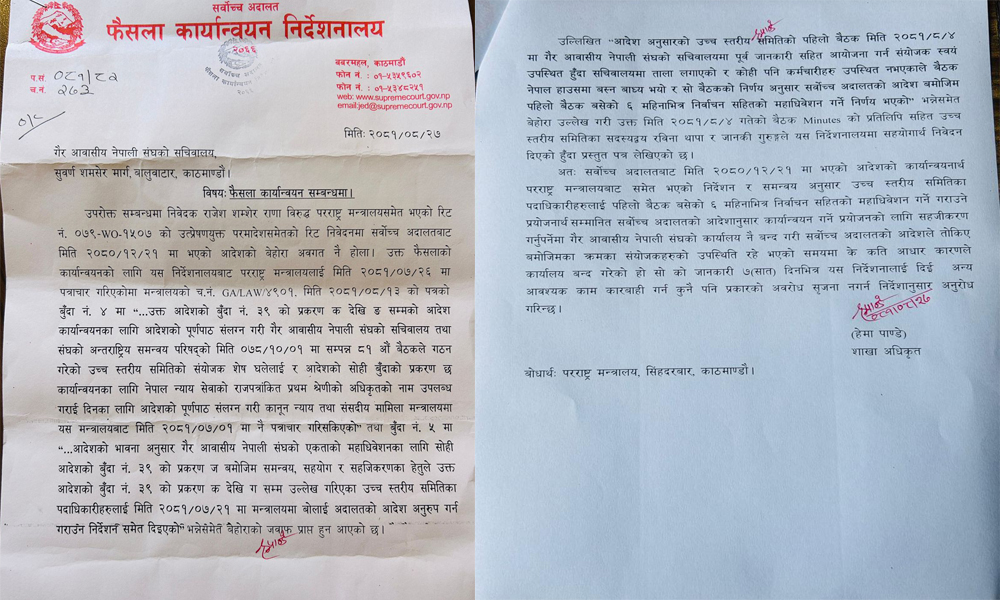 सर्वोच्च अदालत
फैसला कार्यान्वयन निर्देशनालय
२०६६
प.सं ०८१/८२
च.नं. २७३
बबरमहल, काठमाडौं
फोन नं : ०१-५३५९६०२
फोन नं. : ०१-५३४८२५१
web: www.supremecourt.gov.np
email:jed@supremecourt.gov.np
मितिः २०८१/०८/२७
गैर आवासीय नेपाली संघको सचिवालय,
सुवर्ण शमसेर मार्ग, बालुवाटार, काठमाडौं।
विषयः फैसला कार्यान्वयन सम्बन्धमा।
उपरोक्त सम्बन्धमा निवेदक राजेश शम्शेर राणा विरुद्ध परराष्ट्र मन्त्रालयसमेत भएको रिट
नं. ०७९-WO-१५०७ को उत्प्रेषणयुक्त परमादेशसमेतको रिट निवेदनमा सर्वोच्च अदालतबाट
मिति २०८०/१२/२१ मा भएको आदेशको बेहोरा अवगत नै होला। उक्त फैसलाको
कार्यान्वयनको लागि यस निर्देशनालयबाट परराष्ट्र मन्त्रालयलाई मिति २०८१/०७/२६ मा
पत्राचार गरिएकोमा मन्त्रालयको च.नं. GA/LAW/४९०१, मिति २०८१/०८/१३ को पत्रको
बुँदा नं. ४ मा "...उक्त आदेशको बुँदा नं. ३९ को प्रकरण क देखि ङ सम्मको आदेश
कार्यान्वयनका लागि आदेशको पूर्णपाठ संलग्न गरी गैर आवासीय नेपाली संघको सचिवालय तथा
संघको अन्तराष्ट्रिय समन्वय परिषद्को मिति ०७८/१०/०१ मा सम्पन्न ८१ औं बैठकले गठन
गरेको उच्च स्तरीय समितिको संयोजक शेष घलेलाई र आदेशको सोही बुँदाको प्रकरण छ
कार्यान्वयनका लागि नेपाल न्याय सेवाको राजपत्रांकित प्रथम श्रेणीको अधिकृतको नाम उपलब्ध
गराई दिनका लागि आदेशको पूर्णपाठ संलग्न गरी कानून न्याय तथा संसदीय मामिला मन्त्रालयमा
यस मन्त्रालयबाट मिति २०८१/०७/०१ मा नै पत्राचार गरिसकिएको" तथा बुँदा नं. ५ मा
"...आदेशको भावना अनुसार गैर आवासीय नेपाली संघको एकताको महाधिवेशनका लागि सोही
आदेशको बुँदा नं. ३९ को प्रकरण ज बमोजिम समन्वय, सहयोग र सहजिकरणका हेतुले उक्त
आदेशको बुँदा नं. ३९ को प्रकरण क देखि ग सम्म उल्लेख गरिएका उच्च स्तरीय समितिका
पदाधिकारीहरुलाई मिति २०८१/०७/२१ मा मन्त्रालयमा बोलाई अदालतको आदेश अनुरुप गर्न
गराउन निर्देशन समेत दिइएको" भन्नेसमेत बेहोराको जवाफ प्राप्त हुन आएको छ।
उल्लिखित "आदेश अनुसारको उच्च स्तरीय समितिको पहिलो बैठक मिति २०८१/८/४
मा गैर आवासीय नेपाली संघको सचिवालयमा पूर्व जानकारी सहित आयोजना गर्न संयोजक स्वयं
उपस्थित हुँदा सचिवालयमा ताला लगाएको र कोही पनि कर्मचारीहरु उपस्थित नभएकाले बैठक
नेपाल हाउसमा बस्न बाध्य भयो र सो बैठकको निर्णय अनुसार सर्वोच्च अदालतको आदेश बमोजिम
पहिलो बैठक बसेको ६ महिनाभित्र निर्वाचन सहितको महाधिवेशन गर्ने निर्णय भएको" भन्नेसमेत
बेहोरा उल्लेख गरी उक्त मिति २०८१/८/४ गतेको बैठक Minutes को प्रतिलिपि सहित उच्च
स्तरीय समितिका सदस्यद्वय रबिना थापा र जानकी गुरुङ्गले यस निर्देशनालयमा सहयोगार्थ निवेदन
दिएको हुँदा प्रस्तुत पत्र लेखिएको छ।
अतः सर्वोच्च अदालतबाट मिति २०८०/१२/२१ मा भएको आदेशको कार्यान्वयनार्थ
परराष्ट्र मन्त्रालयबाट समेत भएको निर्देशन र समन्वय अनुसार उच्च स्तरीय समितिका
पदाधिकारीहरुलाई पहिलो बैठक बसेको ६ महिनाभित्र निर्वाचन सहितको महाधिवेशन गर्ने गराउने
प्रयोजनार्थ सम्मानित सर्वोच्च अदालतको आदेशानुसार कार्यान्वयन गर्ने प्रयोजनको लागि सहजीकरण
गर्नुपर्नेमा गैर आवासीय नेपाली संघको कार्यालय नै बन्द गरी सर्वोच्च अदालतको आदेशले तोकिए
बमोजिमका क्रमका संयोजकहरुको उपस्थिति रहे भएको समयमा के कति आधार कारणले
कार्यालय बन्द गरेको हो सो को जानकारी ७(सात) दिनभित्र यस निर्देशनालाई दिई अन्य
आवश्यक काम कारबाही गर्न कुनै पनि प्रकारको अवरोध सृजना नगर्न निर्देशानुसार अनुरोध
गरिन्छ।
२०८१/०८/२७
(हेमा पाण्डे)
शाखा अधिकृत
बोधार्थः परराष्ट्र मन्त्रालय, सिंहदरबार, काठमाण्डौ।